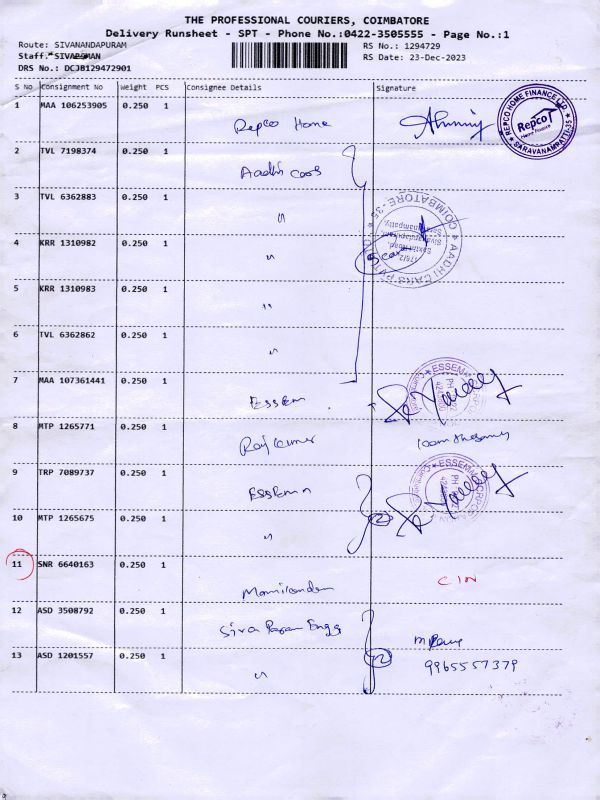 THE PROFESSIONAL COURIERS, COIMBATORE
Delivery Runsheet - SPT - Phone No.:0422-3505555 - Page No.:1
Route: SIVANANDAPURAM RS No.: 1294729
Staff: SIVARAMAN RS Date: 23-Dec-2023
DRS No.: DCJB129472901
S No Consignment No Weight PCS Consignee Details Signature
1 MAA 106253905 0.250 1 Repco Home
REPCO HOME FINANCE LTD
Repco
Home Finance
SARAVANAMPATTI-35
2 TVL 7198374 0.250 1 Aadhi cars
3 TVL 6362883 0.250 1 "
AADHI CARS PVT LTD COIMBATORE-35
4 KRR 1310982 0.250 1 "
5 KRR 1310983 0.250 1 "
6 TVL 6362862 0.250 1 "
7 MAA 107361441 0.250 1 Essem
8 MTP 1265771 0.250 1 Rajkumar
9 TRP 7089737 0.250 1 Essemm
10 MTP 1265675 0.250 1 " 2
11 SNR 6640163 0.250 1
12 ASD 3508792 0.250 1 Siva Param Engg
13 ASD 1201557 0.250 1 " 2 9965557379